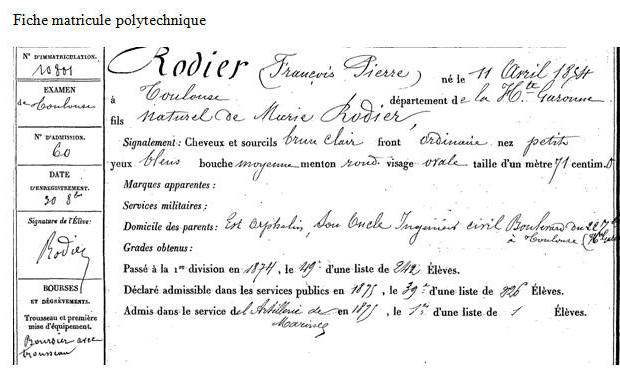 Fiche matricule polytechnique
N° D'IMMATRICULATION.
EXAMEN
de Toulouse
N° D'ADMISSION.
60
DATE
D'ENREGISTREMENT.
30 8bre
Signature de l'Élève:
Rodier
BOURSES
ET DÉGRÈVEMENTS.
Trousseau et première
mise d'équipement.
Boursier avec
trousseau
Rodier (François Pierre) né le 11 Avril 1854
à Toulouse département de la Hte Garonne
fils naturel de Marie Rodier,
Signalement : Cheveux et sourcils brun clair front ordinaire nez petit
yeux bleus bouche moyenne menton rond visage ovale taille d'un mètre 71 centim.
Marques apparentes :
Services militaires :
Domicile des parents : Est orphelin, Son Oncle Ingénieur civil Boulevard du
à Toulouse
Grades obtenus :
Passé à la 1re division en 1874, le 49e d'une liste de 242 Élèves.
Déclaré admissible dans les services publics en 1875, le 39e d'une liste de 226 Élèves.
Admis dans le service de l'Artillerie de en 1875, le 1er d'une liste de 1 Élèves.
Marine